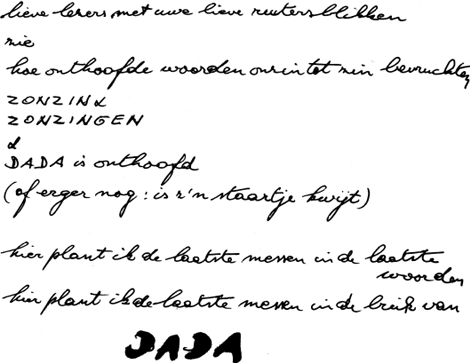 lieve lezers met uwe lieve ruitersblikken
zie
hoe onthoofde woorden onzin tot zin bevruchten
ZONZIN &
ZONZINGEN
&
DADA is onthoofd
(of erger nog: is z'n staartje kwijt)
hier plant ik de laatste messen in de laatste
woorden
hier plant ik de laatste messen in de buik van
DADA